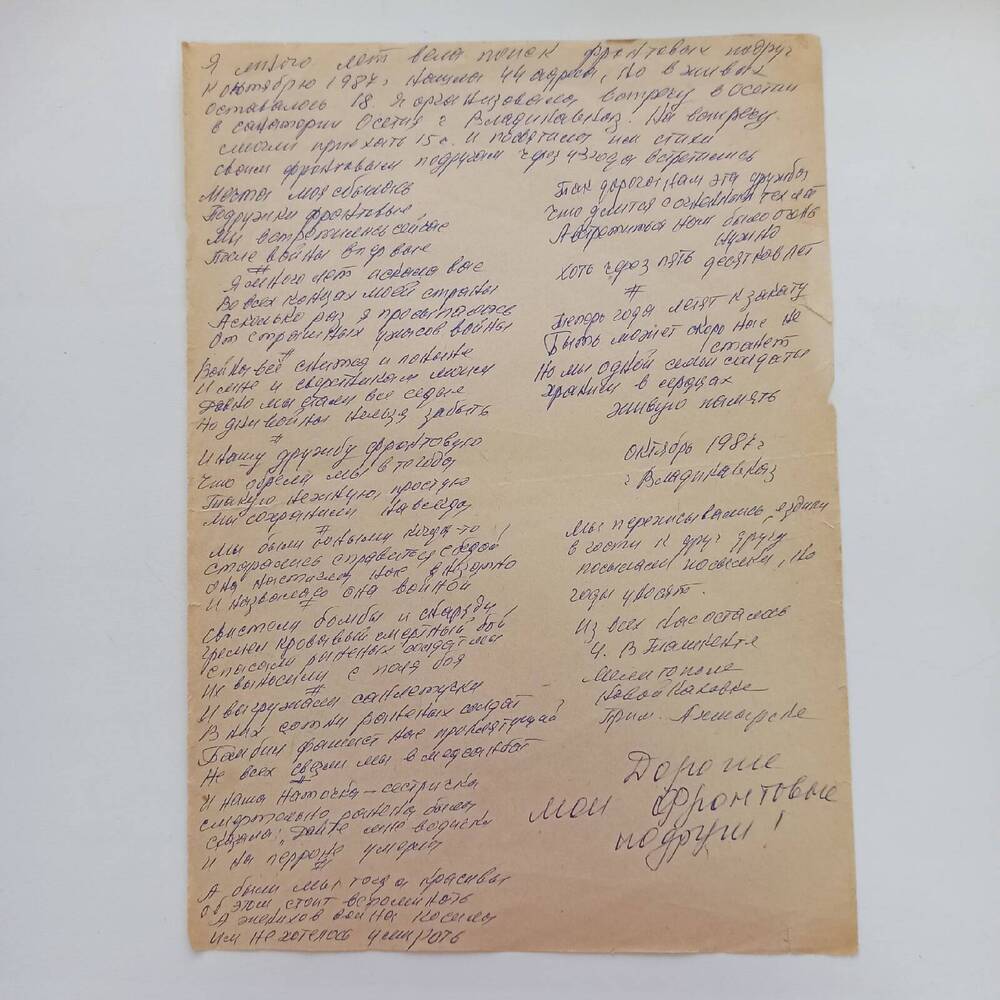 Я много лет вела поиск фронтовых подруг
К октябрю 1987 г нашла 44 адреса, но в живых
оставалось 18. Я организовала встречу в Осетии
в санатории Осетия г Владикавказ. На встречу
смогли приехать 15 ч. и посвятила им стихи
своим фронтовым подругам через 43 года встретились
Мечта моя сбылась
Подружки фронтовые
Мы встретились сейчас
После войны впервые
#
Я много лет искала вас
Во всех концах моей страны
А сколько раз я просыпалась
От страшных ужасов войны
#
Война всё снится и поныне
И мне и сверстникам моим
Давно мы стали все седые
Но дни войны нельзя забыть
#
И нашу дружбу фронтовую
Что обрели мы в те года
Такую нежную, простую
Мы сохранили навсегда
#
Мы были юными когда-то
старались справиться с бедой
она настигла нас внезапно
И назвалась она войной
#
Свистели бомбы и снаряды
Гремел кровавый смертный бой
спасали раненых солдат мы
Их выносили с поля боя
#
И выгружали санлетучки
В них сотни раненых солдат
Бомбил фашист нас проклятущий
Не всех свезли мы в медсанбат
#
И наша Наточка-сестричка
смертельно ранена была
сказала: „Дайте мне водички
И на перроне умерла
#
А были мы тогда красивы
об этом стоит вспоминать
А женихов война косила
Им не хотелось умирать
Так дорога нам эта дружба
Что длится с огненных тех лет
А встретиться нам было очень
нужно
хоть через пять десятков лет
#
Теперь года летят к закату
Быть может скоро нас не
станет
Но мы одной семьи солдаты
храним в сердцах
живую память
октябрь 1987 г
г Владикавказ
Мы переписывались, ездили
в гости к друг другу
посылали посылки, но
годы уносят.
Из всех нас осталось
4. В Ташкенте
Мелитополе
Новой Каховке
Прим. Ахтарске
Дорогие
мои фронтовые
подруги!